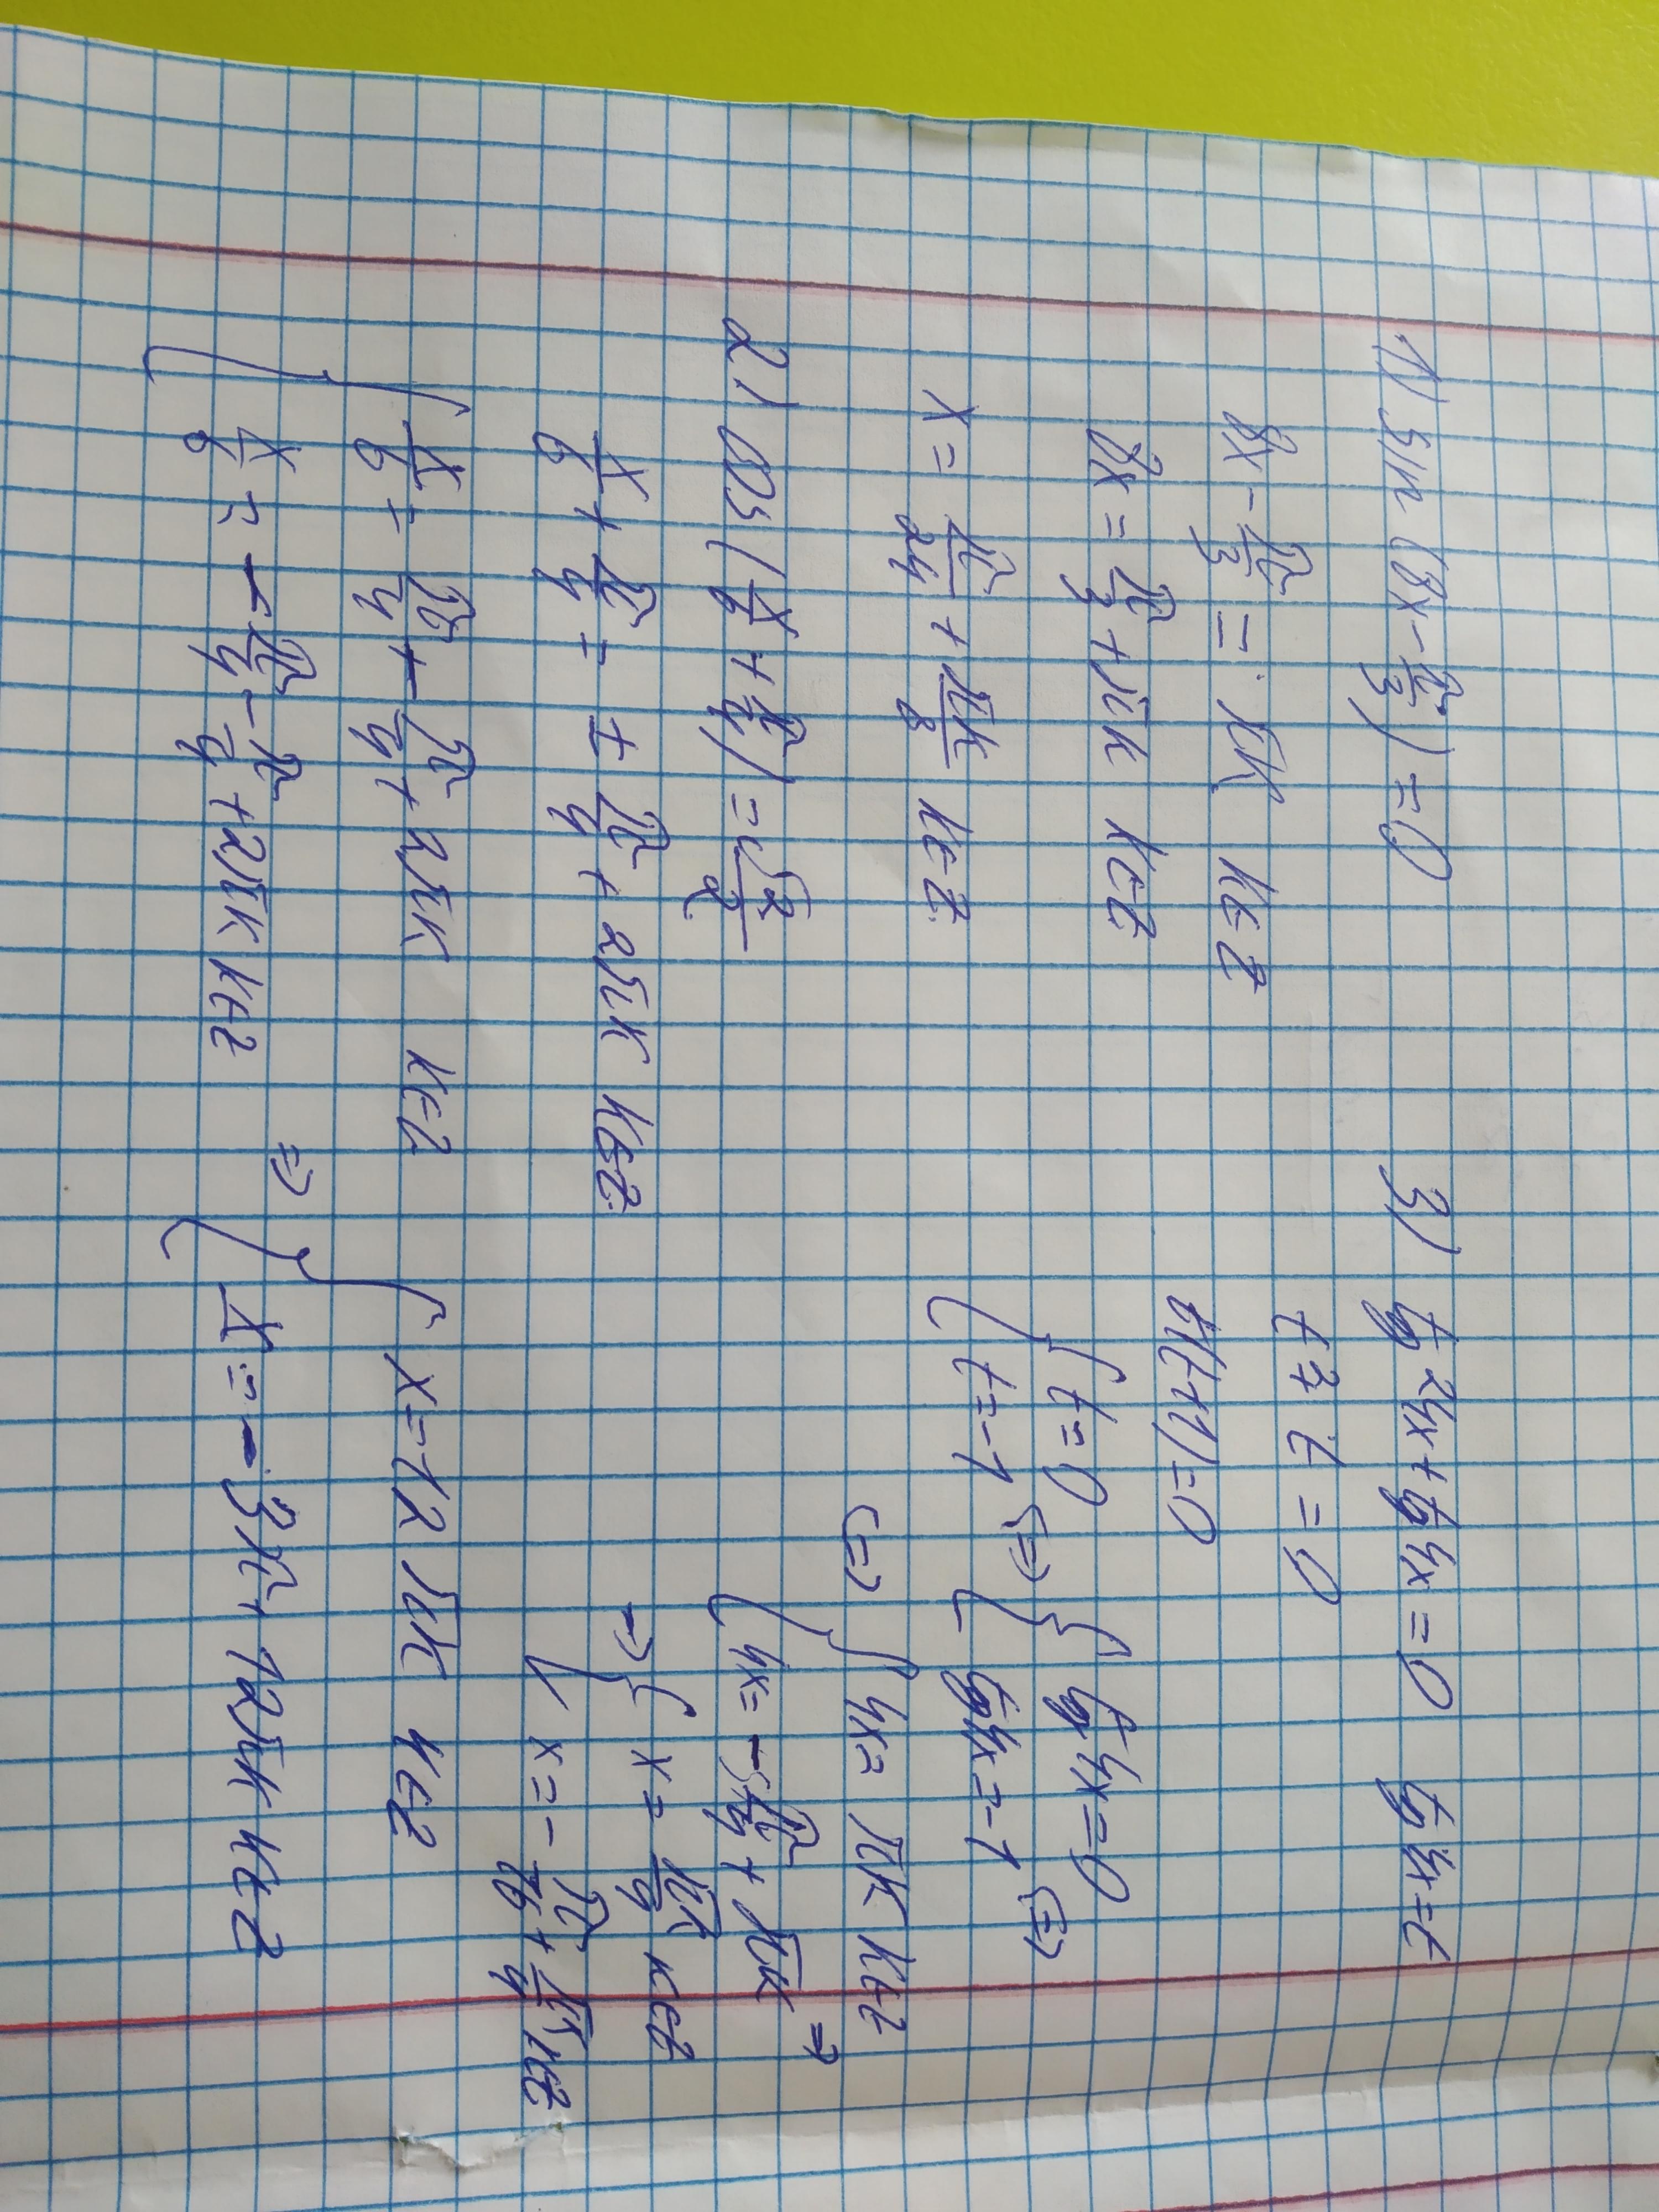 1) sin (8x - π/3) = 0
8x - π/3 = πk k∈Z
8x = π/3 + πk k∈Z
x = π/24 + πk/8 k∈Z
2) cos (x/6 + π/4) = √2/2
x/6 + π/4 = ± π/4 + 2πk k∈Z
[ x/6 = π/4 - π/4 + 2πk k∈Z
x/6 = - π/4 - π/4 + 2πk k∈Z
=> [ x = 12πk k∈Z
x = - 3π + 12πk k∈Z
3) tg²4x + tg4x = 0 tg4x = t
t² + t = 0
t(t+1) = 0
[ t = 0
t = -1 <=> [ tg4x = 0
tg4x = -1 <=>
<=> [ 4x = πk k∈Z
4x = - π/4 + πk =>
=> [ x = πk/4 k∈Z
x = - π/16 + πk/4 k∈Z